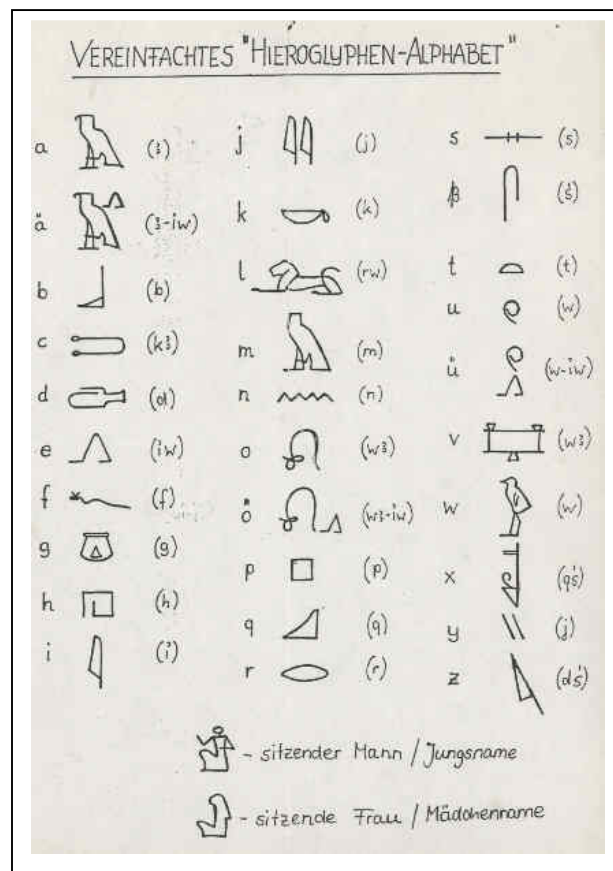 VEREINFACHTES "HIEROGLYPHEN-ALPHABET"
a (ꜣ)
ä (ꜣ-iw)
b (b)
c (kꜣ)
d (d)
e (iw)
f (f)
g (g)
h (h)
i (i)
j (j)
k (k)
l (rw)
m (m)
n (n)
o (wꜣ)
ö (wꜣ-iw)
p (p)
q (q)
r (r)
s (s)
ß (ś)
t (t)
u (w)
ü (w-iw)
v (wꜣ)
w (w)
x (qś)
y (j)
z (dś)
- sitzender Mann / Jungsname
- sitzende Frau / Mädchenname